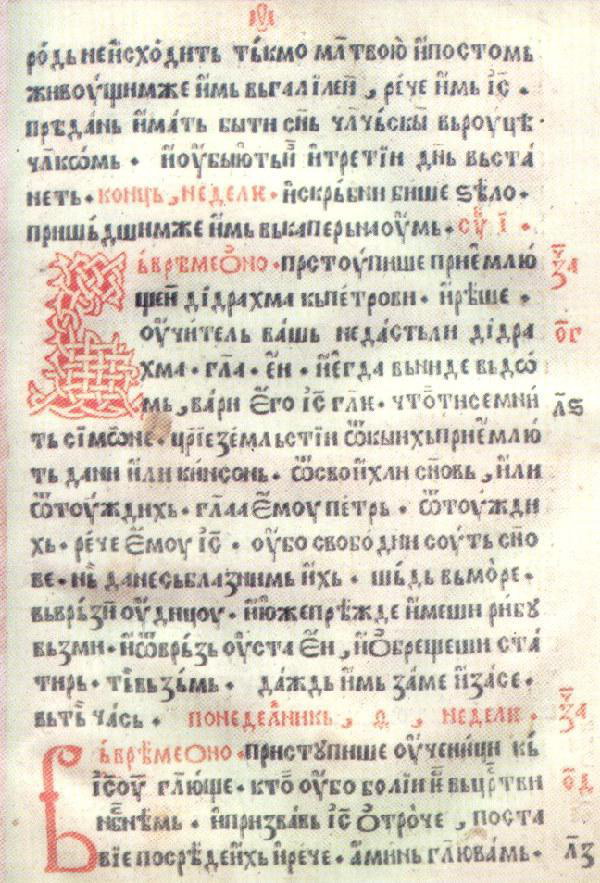 м҃
родь неи҆сходить ты́кмо мл҃твою и҆постомь
живоу́щимже и҆мь вьгалїлеи҆, ре́че и҆мь і҃с ·
прѣда́нь и҆ма́ть быти сн҃ь чл҃чьскы вьроуцѣ ·
чл҃кѡмь · и҆оу҆бьют̾ьи҆ и҆третїи дн҃ь вьста́
неть · конць, недели · и҆скрьбни бише ѕѣло ·
пришьдшимже и҆мь вькаперьнаоумь · су҃ і҃ ·
ьврѣмеѻно · прстоупише прие҆млю́
щеи дїдрахма кьпетрови · и҆рѣше ·
оу҆чи́тель ва́шь неда́стьли дїдра
хма · гл҃а · еи · и҆е҆гда вьниде вьдѡ
мь, вари е҆го і҃с гл҃и · что̀тисемни
ть сїмѡне · цр҃їе зе́мльстїи ѿкыихьприе҆млю́
ть дани и҆ли ки́нсонь · ѿсвои҆хли сн҃овь, и҆ли
ѿтоу́ждихь · гл҃аа е҆моу пе́трь · ѿтоу́жди
хь · ре́че е҆моу і҃с · оу҆бо свобо́дни соу́ть сн҃о
ве · нь̀ данесьблазнимь и҆хь · шьдь вьмо́ре ·
вьврьзи оу́дицоу · и҆ю҆жепрѣжде и҆меши рибу
вьзми · и҆ѿврьзь оу҆ста е҆и, и҆ѻбрещеши ста́
тирь · ть̀вьзьмь · да́ждь и҆мь за́ме и҆за́се ·
вьть̀ ча́сь · понедел҃никь, д҃, недели · за҃
Вьврѣмеѻно · приступише оу҆ченици кь
і҃соу гл҃юще · кто̀ оу҆бо болїи и҆ вьцр҃тви
нб҃нѣмь · и҆призва́вь і҃с ѻтро́че, поста
вїе посрѣдеи҆хь и҆рече · а҆минь гл҃ювамь ·
за҃
о҃г
л҃ѕ
о҃д
л҃з